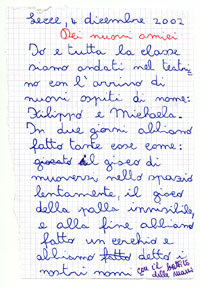 Lecce, 4 dicembre 2002
Dei nuovi amici
Io e tutta la classe
siamo andati nel teatri-
no con l'arrivo di
nuovi ospiti di nome:
Filippo e Michaela.
In due giorni abbiamo
fatto tante cose come:
giocato il gioco di
muoversi nello spazio
lentamente, il gioco
della palla invisibile,
e alla fine abbiamo
fatto un cerchio e
abbiamo fatto detto i
nostri nomi con il battito
delle mani